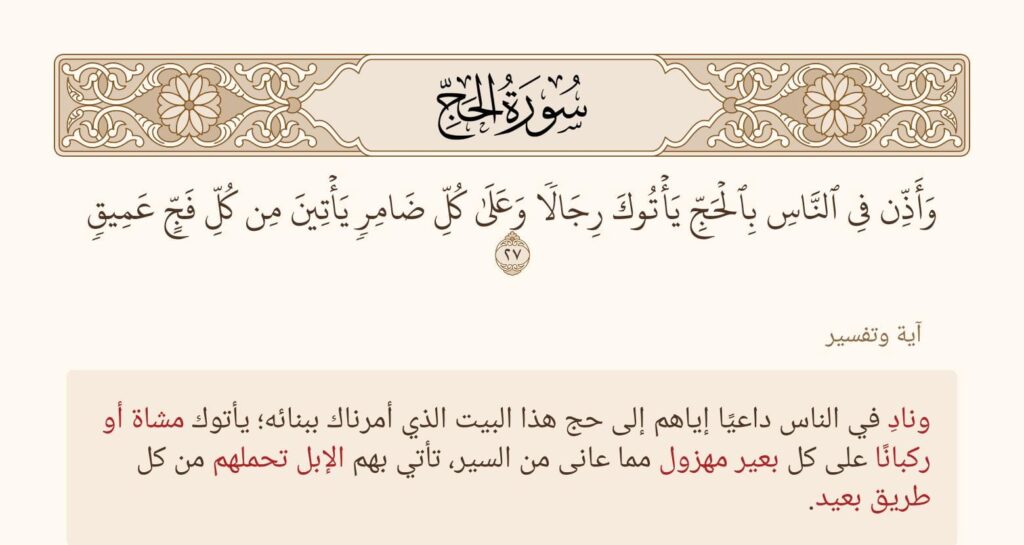 سُورَةُ الحَجِّ
وَأَذِّن فِي ٱلنَّاسِ بِٱلۡحَجِّ يَأۡتُوكَ رِجَالٗا وَعَلَىٰ كُلِّ ضَامِرٖ يَأۡتِينَ مِن كُلِّ فَجٍّ عَمِيقٖ
٢٧
آية وتفسير
ونادِ في الناس داعيًا إياهم إلى حج هذا البيت الذي أمرناك ببنائه؛ يأتوك مشاة أو
ركبانًا على كل بعير مهزول مما عانى من السير، تأتي بهم الإبل تحملهم من كل
طريق بعيد.